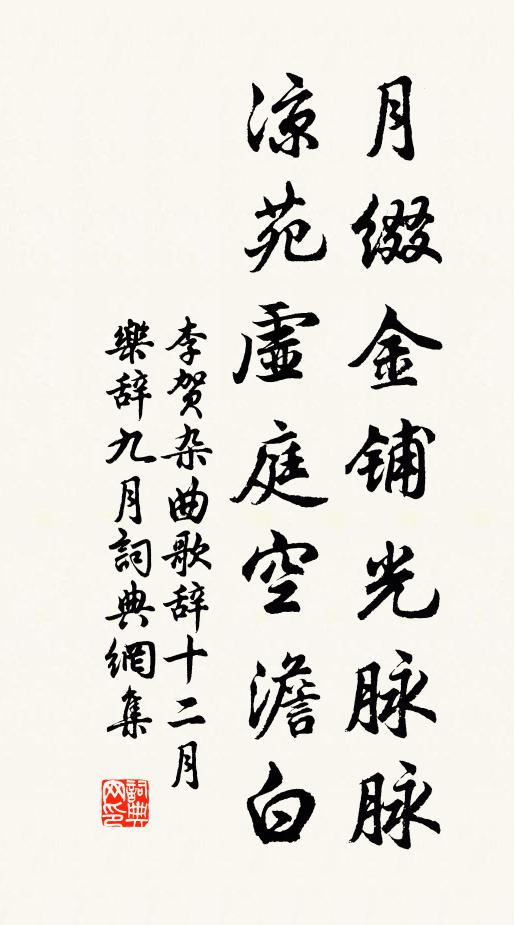 月綴金鋪光脉脉
涼苑虛庭空澹白
李賀杂曲歌辞十二月
樂辞九月詞典網集
詞典网印